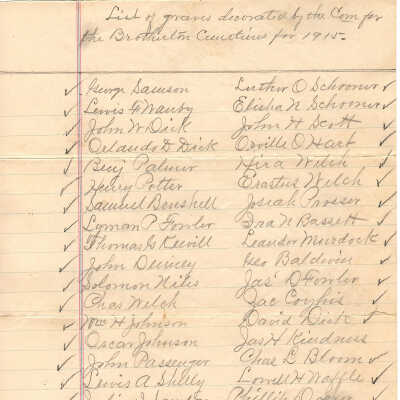 List of graves decorated by the Com for
the Brotherton Cemeteries for 1915-
George Samson Luther O Schoonover
Lewis F Wanby Elisha N Schoonover
John W Dick John H Scott
Orlando D Dick Orville O Hart
Benj Palmer Hira Welch
Henry Potter Erastus Welch
Samuel Benshell Josiah Prosser
Lyman P Fowler Ira N Bassett
Thomas G Keevill Leander Murdock
John Denney Geo Baldwin
Solomon Niles Jas D Fowler
Chas Welch Jac
Wm H Johnson David Dick
Oscar Johnson Jas H Kindness
John Passenger Chas L Bloom
Lewis A Shelly Lowell H Waffle
Phillip